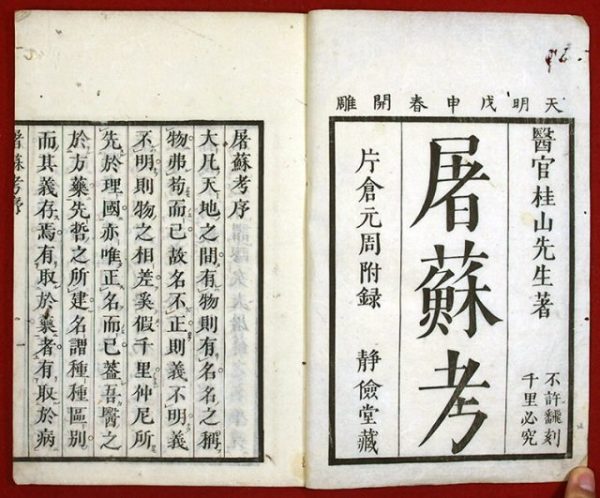 天明戊申春開雕
醫官桂山先生著
不許飜刻
千里必究
屠蘇考
片倉元周附録 靜儉堂藏
屠蘇考序
大凡天地之間有物則有名名之稱
物弗苟而已故名不正則義不明義
不明則物之相差奚假千里仲尼所
先於理國亦唯正名而已蓋吾醫之
於方藥先哲之所建名謂種種區別
而其義存焉有取於藥者有取於病
屠蘇考序